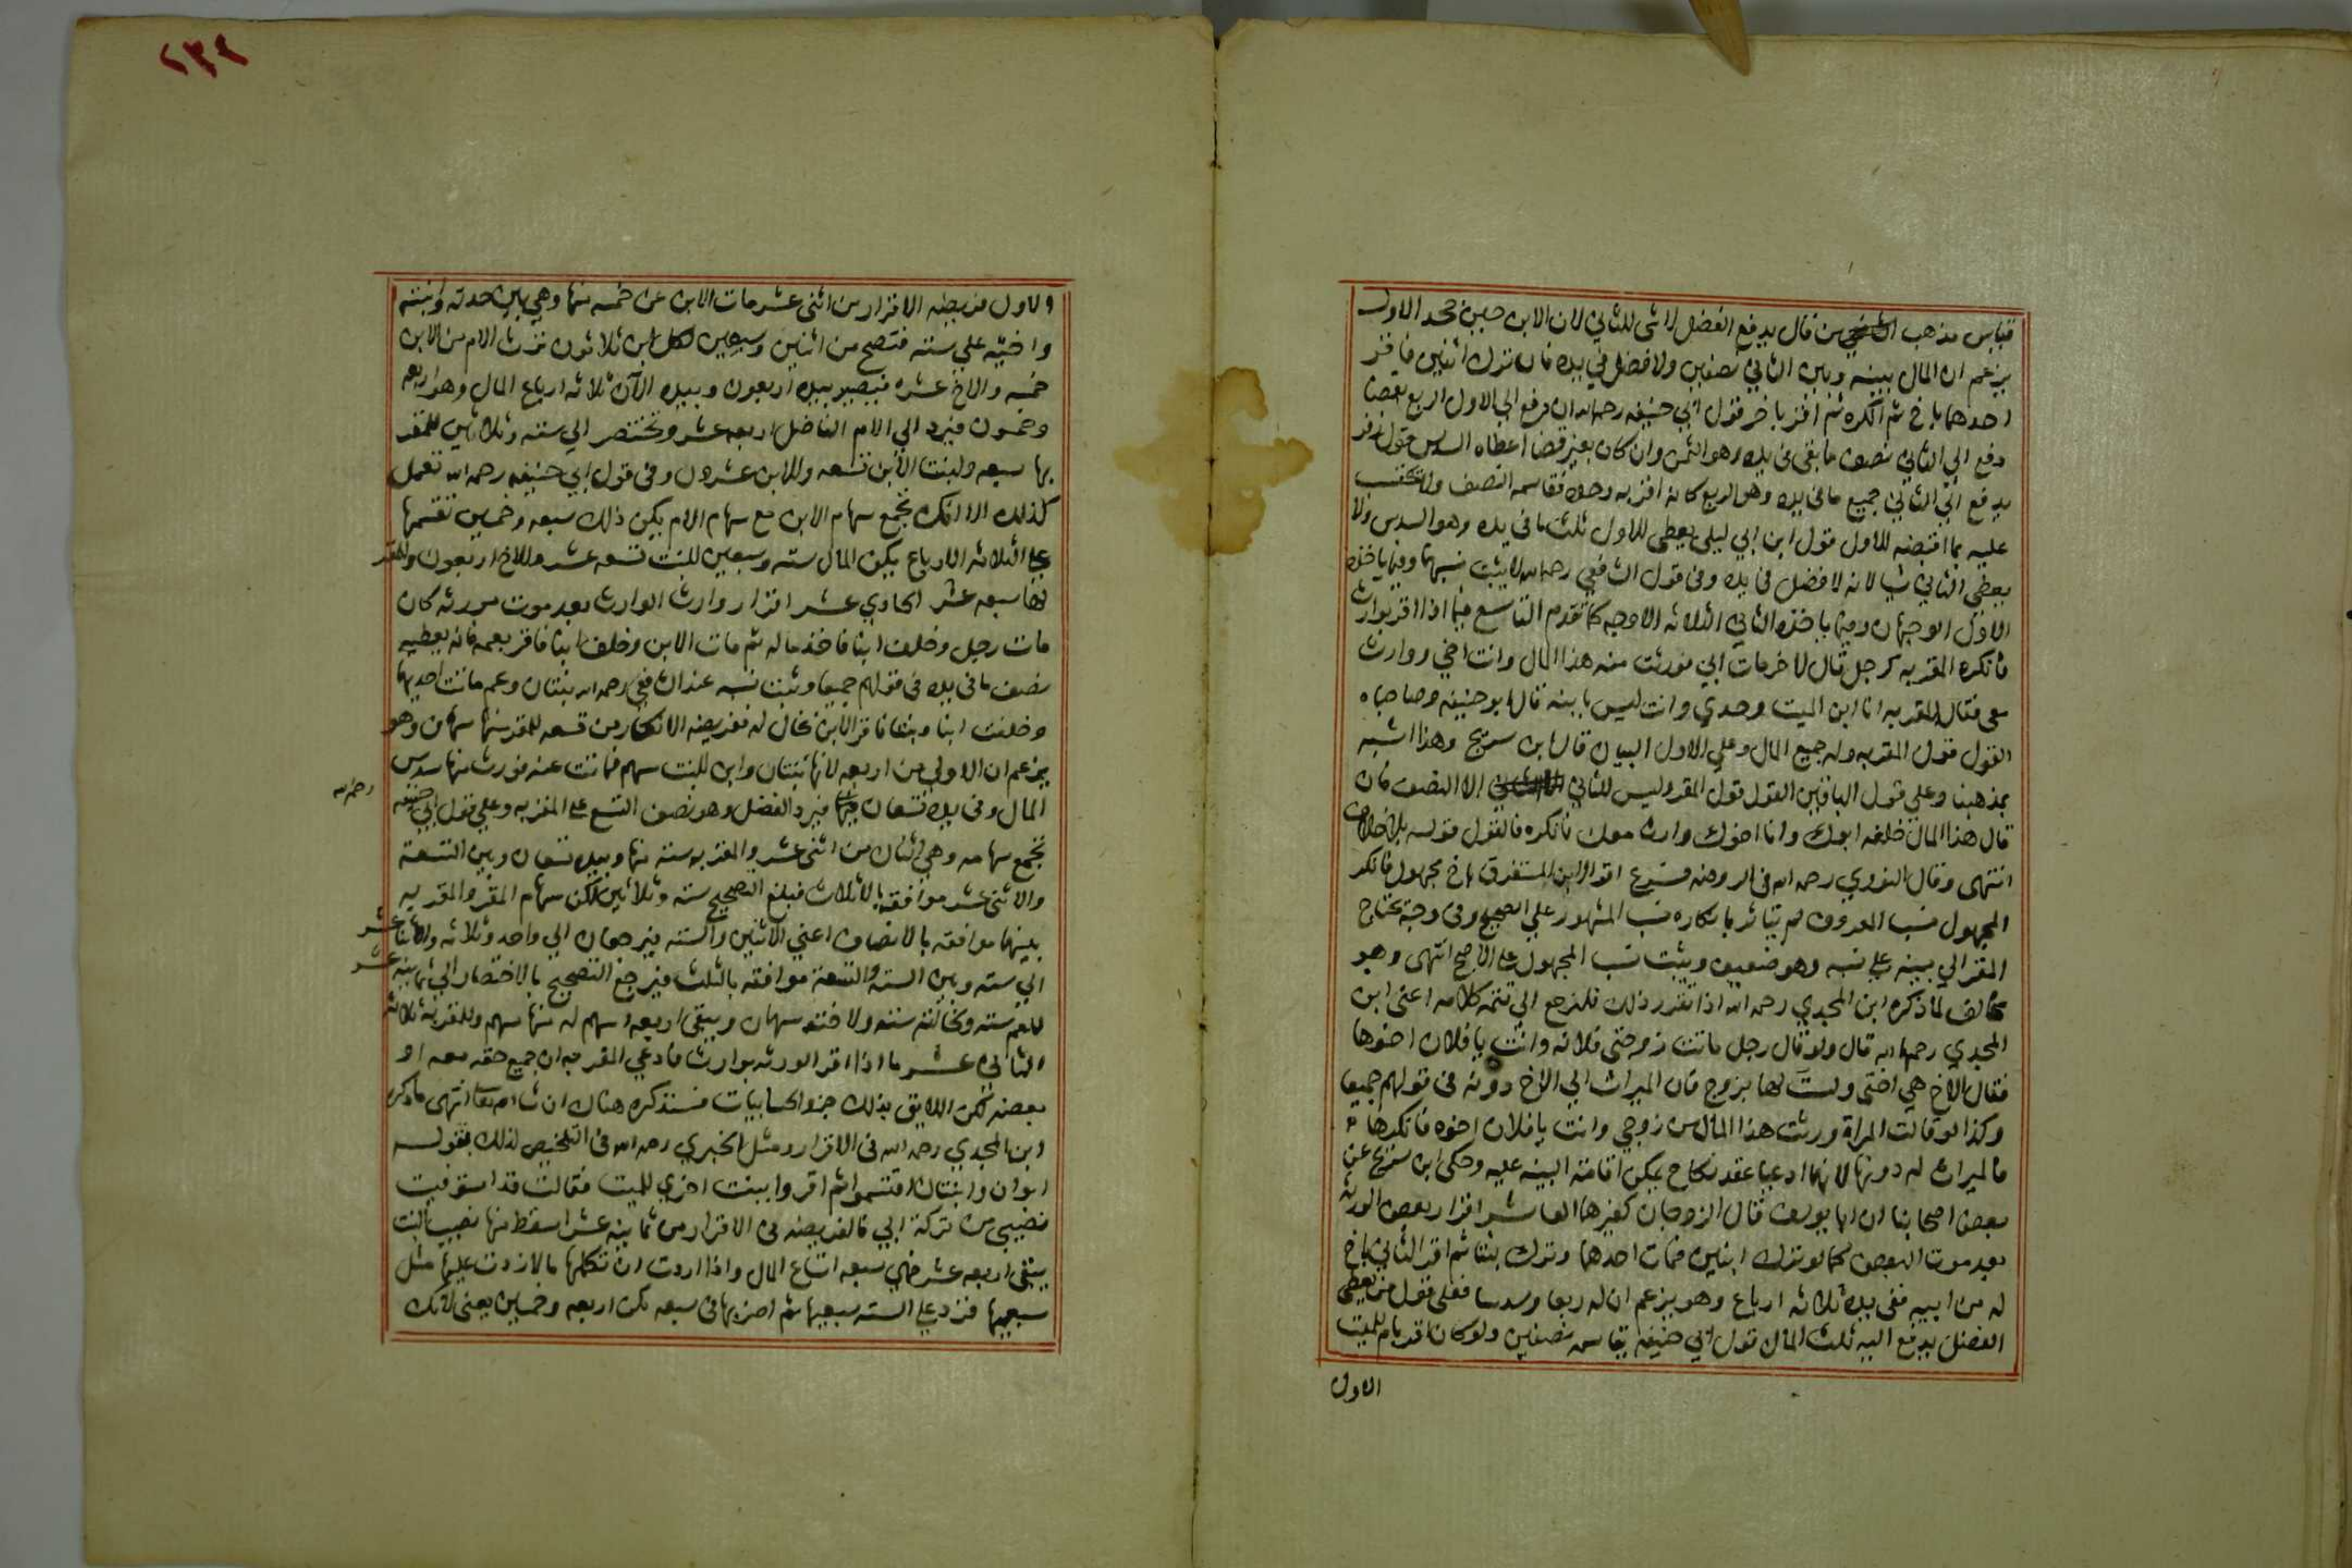 فقياس مذهب من قال يدفع الفضل لا شى للثاني لان الابن حين جحد الاول
يزعم ان المال بينه وبين الثاني نصفين ولا فضل في يده فان ترك اثنين فاقر
احدهما باخ ثم انكره ثم اقر باخر فقول ابي حنيفه رحمه الله ان دفع الي الاول الربع بقضا
دفع الي الثاني نصف ما بقى في يده وهو الثمن وان كان بغير قضا اعطاه السدس وقول زفر
يدفع الي الثاني جميع ما في يده وهو الربع كانه اقر به وحده فقاسمه النصف ولا
عليه بما اقبضه للاول قول ابن ابي ليلى يعطى للاول ثلث ما في يده وهو السدس ولا
يعطي الثاني شيا لانه لا فضل في يده وفي قول الشافعي رحمه الله لا يثبت نسبهما وفيما ياخذه
الاول الوجهان وفيما ياخذه الثاني الثلاثه الاوجه كما تقدم التاسع فيما اذا اقر بوارث
فانكره المقر به كرجل قال لاخر مات ابي فورثت منه هذا المال وانت اخي ووارث
معى فقال المقر به انا ابن الميت وحدي وانت ليس بابنه قال ابو حنيفه وصاحباه
القول قول المقر به وله جميع المال وعلي الاول البيان قال ابن سريج وهذا اشبه
بمذهبنا وعلي قول الباقين القول قول المقر وليس للثاني الا النصف فان
قال هذا المال خلفه ابوك وانا اخوك وارث معك فانكره فالقول قوله بلا خلاف
انتهى وقال النووي رحمه الله في الروضه فرع اقر الابن المستغرق باخ مجهول فانكر
المجهول نسب المعروف لم يتاثر بانكاره نسب المشهور علي الصحيح وفي وجه يحتاج
المقر الي بينه على نسبه وهو ضعيف ويثبت نسب المجهول على الاصح انتهى وهو
مخالف لما ذكره ابن المجدي رحمه الله اذا تقرر ذلك فلنرجع الي تتمه كلامه اعني ابن
المجدي رحمه الله قال ولو قال رجل ماتت زوجتي فلانه وانت يا فلان اخوها
فقال الاخ هي اختى ولست لها بزوج فان الميراث الي الاخ دونه في قولهم جميعا
وكذا لو قالت المراة ورثت هذا المال من زوجي وانت يا فلان اخوه فانكرها
فالميراث له دونها لانهما ادعيا عقد نكاح يمكن اقامة البينه عليه وحكى ابن سريج عن
بعض اصحابنا ان ابا يوسف قال الزوجان كغيرهما العاشر اقرار بعض الورثه
بعد موت البعض كما لو ترك ابنين فمات احدهما وترك بنتا ثم اقر الثاني باخ
له من ابيه ففى يده ثلاثه ارباع وهو يزعم ان له ربعا وسدسا فعلى قول من يعطى
الفضل يدفع اليه ثلث المال قول ابي حنيفه يتقاسمه نصفين ولو كان اقر بام للميت
الاول
١٣٩
والاول فريضه الاقرار من اثنى عشر مات الابن عن خمسه منها وهي بين جدته وابنته
واخيه علي سته فتصح من اثنين وسبعين لكل ابن ثلاثون ترث الام من الابن
خمسه والاخ عشره فيصير بيده اربعون وبيده الآن ثلاثه ارباع المال وهو اربعه
وخمسون فيرد الي الام الفاضل اربعه عشر وتختصر الي سته وثلاثين للمقر
بها سبعه ولبنت الابن تسعه وللابن عشرون وفي قول ابي حنيفه رحمه الله تعمل
كذلك الا انك تجمع سهام الابن مع سهام الام يكن ذلك سبعه وخمسين تقسمها
على الثلاثه الارباع يكون المال سته وسبعين للبنت تسعه عشر وللاخ اربعون وللمقر
لها سبعه عشر الحادي عشر اقرار وارث الوارث بعد موت مورثه كان
مات رجل وخلف ابنا فاخذ ماله ثم مات الابن وخلف ابنا فاقر بعمه فانه يعطيه
نصف ما في يده في قولهم جميعا ويثبت نسبه عند الشافعي رحمه الله بنتان وعم ماتت احديهما
وخلفت ابنا وبنتا فاقر الابن بخال له ففريضه الانكار من تسعه للمقر منها سهمان وهو
يزعم ان الاولي من اربعه لانها بنتان وابن للبنت سهم فماتت عنه فورث منها سدس
المال وفي يده تسعان فيرد الفضل وهو نصف التسع على المقر به وعلي قول ابي حنيفه
رحمه الله
تجمع سهامه وهي اثنان من اثنى عشر والمقر به سته منها وبيده تسعان وبين التسعة
والاثنى عشر موافقه بالاثلاث فبلغ التصحيح سته وثلاثين لكن سهام المقر والمقر به
بينهما موافقه بالانصاف اعني الاثنين والسته فيرجعان الي واحد وثلاثه والاثنا عشر
الي سته وبين السته والتسعة موافقه بالثلث فيرجع التصحيح بالاختصار الي ثمانيه عشر
للعم سته ولخالته سته ولاخته سهمان ويبقى اربعه اسهم له منها سهم وللمقر به ثلاثه
الثاني عشر ما اذا اقر الورثه بوارث فادعي المقر به ان جميع حقه معه او
بعضه لكن اللايق بذلك جزو الحسابيات فسنذكره هناك ان شا الله تعالى انتهى ما ذكره
ابن المجدي رحمه الله في الاقرار ومثل الخبري رحمه الله في التلخيص لذلك بقوله
ابوان وابنتان اقتسموا ثم اقروا ببنت اخري للميت فقالت قد استوفيت
نصيبي من تركة ابي فالفريضه في الاقرار من ثمانيه عشر اسقط منها نصيب البنت
يبقى اربعه عشر فهي سبعه اتساع المال واذا اردت ان تكملها مالا زدت عليها مثل
سبعيها فزد علي السته سبعيها ثم اضربها في سبعه تكن اربعه وخمسين يعني لانك